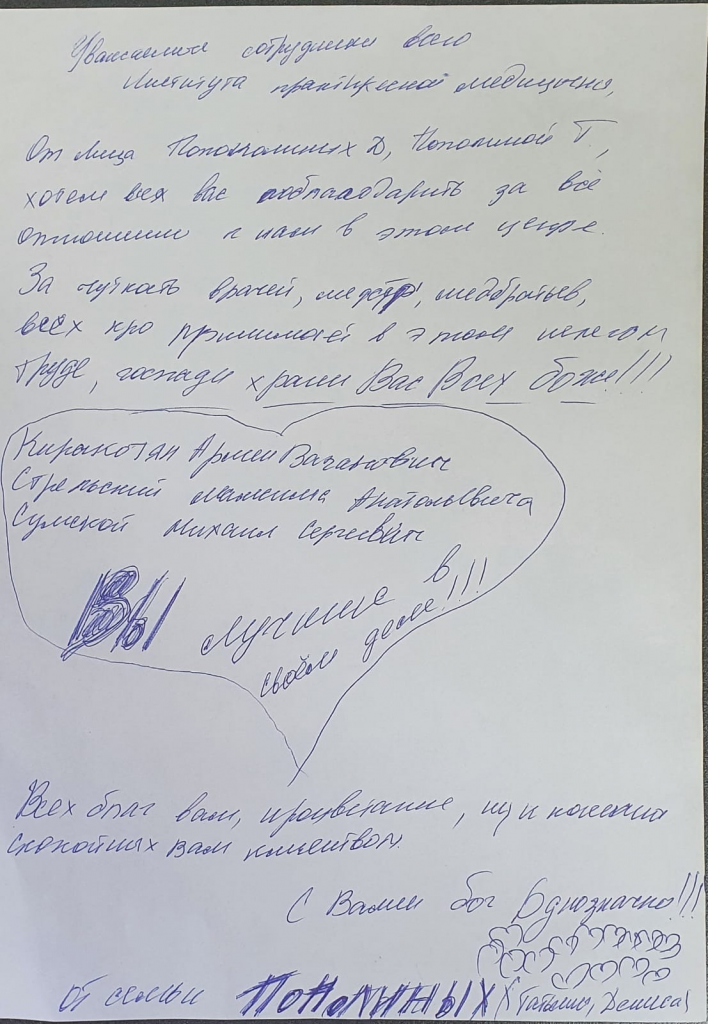 Уважаемые сотрудники всего
Института практической медицины,
От лица Попониных Д, Попониной Т.,
хотели всех вас поблагодарить за всё
отношении к нам в этом центре.
За чуткость врачей, медбратьев,
всех кто в этом нелегком
труде, господи храни Вас Всех боже!!!
Киракосян Армен Вачаганович
Стрельский Максима Анатольевича
Сумской Михаил Сергеевич
ВЫ лучшие в
своём деле!!!
Всех благ вам, процветание, ну и конечно
спокойных вам клиентов.
С Вами бог Однозначно!!!
от семьи (Татьяны, Дениса)